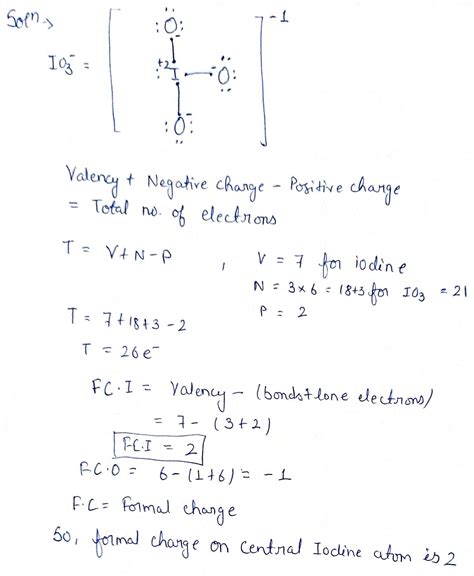 Solⁿ→
IO₃⁻ = [ :Ö:⁻ +2 I :Ö:⁻ :Ö:⁻ ]⁻¹
Valency + Negative charge - Positive charge
= Total no. of electrons
T = V+N-P , V = 7 for iodine
N = 3×6 = 18+3 for IO₃ = 21
P = 2
T = 7+18+3-2
T = 26e⁻
FC.I = Valency - (bonds+lone electrons)
= 7 - (3+2)
F.C.I = 2
F.C.O = 6-(1+6) = -1
F.C = Formal charge
So, formal charge on Central Iodine atom is 2